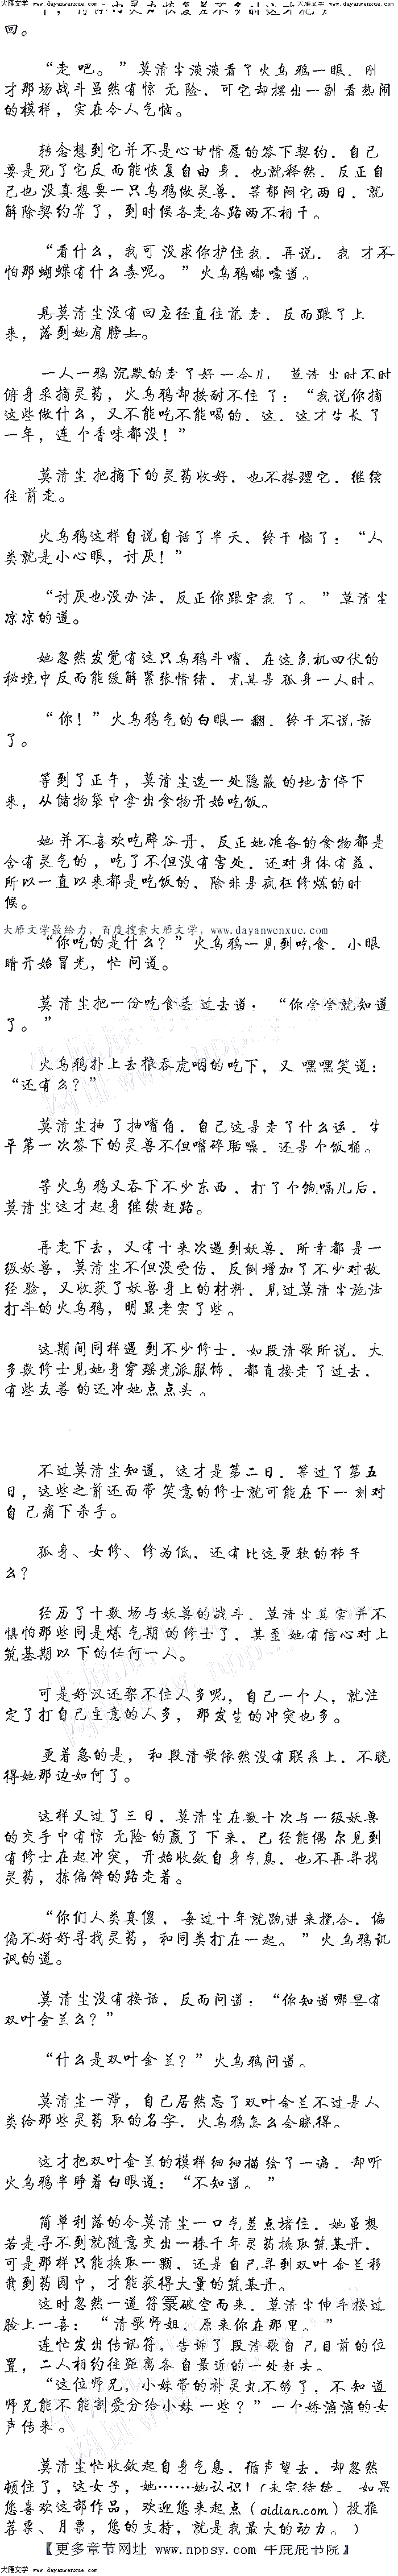 大雁文学 www.dayanwenxue.com 大雁文学 www.dayanwenxue.com 大雁文学 www.dayanwenxue.com
回。
“走吧。”莫清尘淡淡看了火乌鸦一眼，刚
才那场战斗虽然有惊无险，可它却摆出一副看热闹
的模样，实在令人气恼。
转念想到它并不是心甘情愿的签下契约，自己
要是死了它反而能恢复自由身，也就释然，反正自
己也没真想要一只乌鸦做灵兽，等郁闷它两日，就
解除契约算了，到时候各走各路两不相干。
“看什么，我可没求你护住我，再说，我才不
怕那蝴蝶有什么毒呢。”火乌鸦嘟囔道。
见莫清尘没有回应径直往前走，反而跟了上
来，落到她肩膀上。
一人一鸦沉默的走了好一会儿，莫清尘时不时
俯身采摘灵药，火乌鸦却按耐不住了：“我说你摘
这些做什么，又不能吃不能喝的，这，这才生长了
一年，连个香味都没！”
莫清尘把摘下的灵药收好，也不搭理它，继续
往前走。
火乌鸦这样自说自话了半天，终于恼了：“人
类就是小心眼，讨厌！”
“讨厌也没办法，反正你跟定我了。”莫清尘
凉凉的道。
她忽然发觉有这只乌鸦斗嘴，在这危机四伏的
秘境中反而能缓解紧张情绪，尤其是孤身一人时。
“你！”火乌鸦气的白眼一翻，终于不说话
了。
等到了正午，莫清尘选一处隐蔽的地方停下
来，从储物袋中拿出食物开始吃饭。
她并不喜欢吃辟谷丹，反正她准备的食物都是
含有灵气的，吃了不但没有害处，还对身体有益，
所以一直以来都是吃饭的，除非是疯狂修炼的时
候。
大雁文学最给力，百度搜索大雁文学，www.dayanwenxue.com
“你吃的是什么？”火乌鸦一见到吃食，小眼
睛开始冒光，忙问道。
莫清尘把一份吃食丢过去道：“你尝尝就知道
了。”
火乌鸦扑上去狼吞虎咽的吃下，又嘿嘿笑道：
“还有么？”
莫清尘抽了抽嘴角，自己这是走了什么运，生
平第一次签下的灵兽不但嘴碎聒噪，还是个饭桶。
等火乌鸦又吞下不少东西，打了个饱嗝儿后，
莫清尘这才起身继续赶路。
再走下去，又有十来次遇到妖兽，所幸都是一
级妖兽，莫清尘不但没受伤，反倒增加了不少对敌
经验，又收获了妖兽身上的材料，见过莫清尘施法
打斗的火乌鸦，明显老实了些。
这期间同样遇到不少修士，如段清歌所说，大
多数修士见她身穿瑶光派服饰，都直接走了过去，
有些友善的还冲她点点头。
不过莫清尘知道，这才是第二日，等过了第五
日，这些之前还面带笑意的修士就可能在下一刻对
自己痛下杀手。
孤身、女修、修为低，还有比这更软的柿子
么？
经历了十数场与妖兽的战斗，莫清尘其实并不
惧怕那些同是炼气期的修士了，甚至她有信心对上
筑基期以下的任何一人。
可是好汉还架不住人多呢，自己一个人，就注
定了打自己主意的人多，那发生的冲突也多。
更着急的是，和段清歌依然没有联系上，不晓
得她那边如何了。
这样又过了三日，莫清尘在数十次与一级妖兽
的交手中有惊无险的赢了下来，已经能偶尔见到
有修士在起冲突，开始收敛自身气息，也不再寻找
灵药，拣偏僻的路走着。
“你们人类真傻，每过十年就跑进来搅合，偏
偏不好好寻找灵药，和同类打在一起。”火乌鸦讥
讽的道。
莫清尘没有接话，反而问道：“你知道哪里有
双叶金兰么？”
“什么是双叶金兰？”火乌鸦问道。
莫清尘一滞，自己居然忘了双叶金兰不过是人
类给那些灵药取的名字，火乌鸦怎么会晓得。
这才把双叶金兰的模样细细描绘了一遍，却听
火乌鸦半睁着白眼道：“不知道。”
简单利落的令莫清尘一口气差点堵住，她虽想
若是寻不到就随意交出一株千年灵药换取筑基丹，
可是那样只能换取一颗，还是自己寻到双叶金兰移
栽到药园中，才能获得大量的筑基丹。
这时忽然一道符箓破空而来，莫清尘伸手接过
脸上一喜：“清歌师姐，原来你在那里。”
连忙发出传讯符，告诉了段清歌自己目前的位
置，二人相约往距离各自最近的一处赶去。
“这位师兄，小妹带的补灵丸不够了，不知道
师兄能不能割爱分给小妹一些？”一个娇滴滴的女
声传来。
莫清尘忙收敛起自身气息，循声望去，却忽然
顿住了，这女子，她……她认识！（未完待续。如果
您喜欢这部作品，欢迎您来起点（qidian.com）投推
荐票、月票，您的支持，就是我最大的动力。）
【更多章节网址 www.nppsy.com 牛屁屁书院】
大雁文学 www.dayanwenxue.com 大雁文学 www.dayanwenxue.com 大雁文学 www.dayanwenxue.com